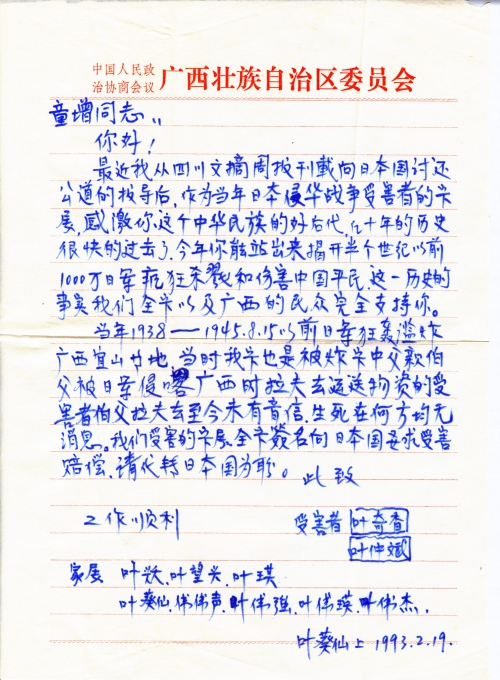 中国人民政
治协商会议 广西壮族自治区委员会
童增同志,,
你好!
最近我从四川文摘周报刊载向日本国讨还
公道的报导后,作为当年日本侵华战争受害者的家
属,感激你这个中华民族的好后代,几十年的历史
很快的过去了,今年你能站出来揭开半个世纪以前
1000万日军疯狂杀戮和伤害中国平民,这一历史的
事实我们全家以及广西的民众完全支持你。
当年1938——1945.8.15以前日军狂轰滥炸
广西宜山各地,当时我家也是被炸家中父亲伯
父被日军侵略广西时拉夫去运送物资的受
害者伯父拉夫去至今未有音信,生死在何方均无
消息。我们受害的家属全家签名向日本国要求受害
赔偿,请代转日本国为盼。
此致
工作顺利
受害者 叶奇香
叶仲斌
家属 叶跃,叶望兴,叶瑛
叶葵仙,伟声,叶伟强,叶伟瑛,叶伟杰.
叶葵仙上 1993.2.19.